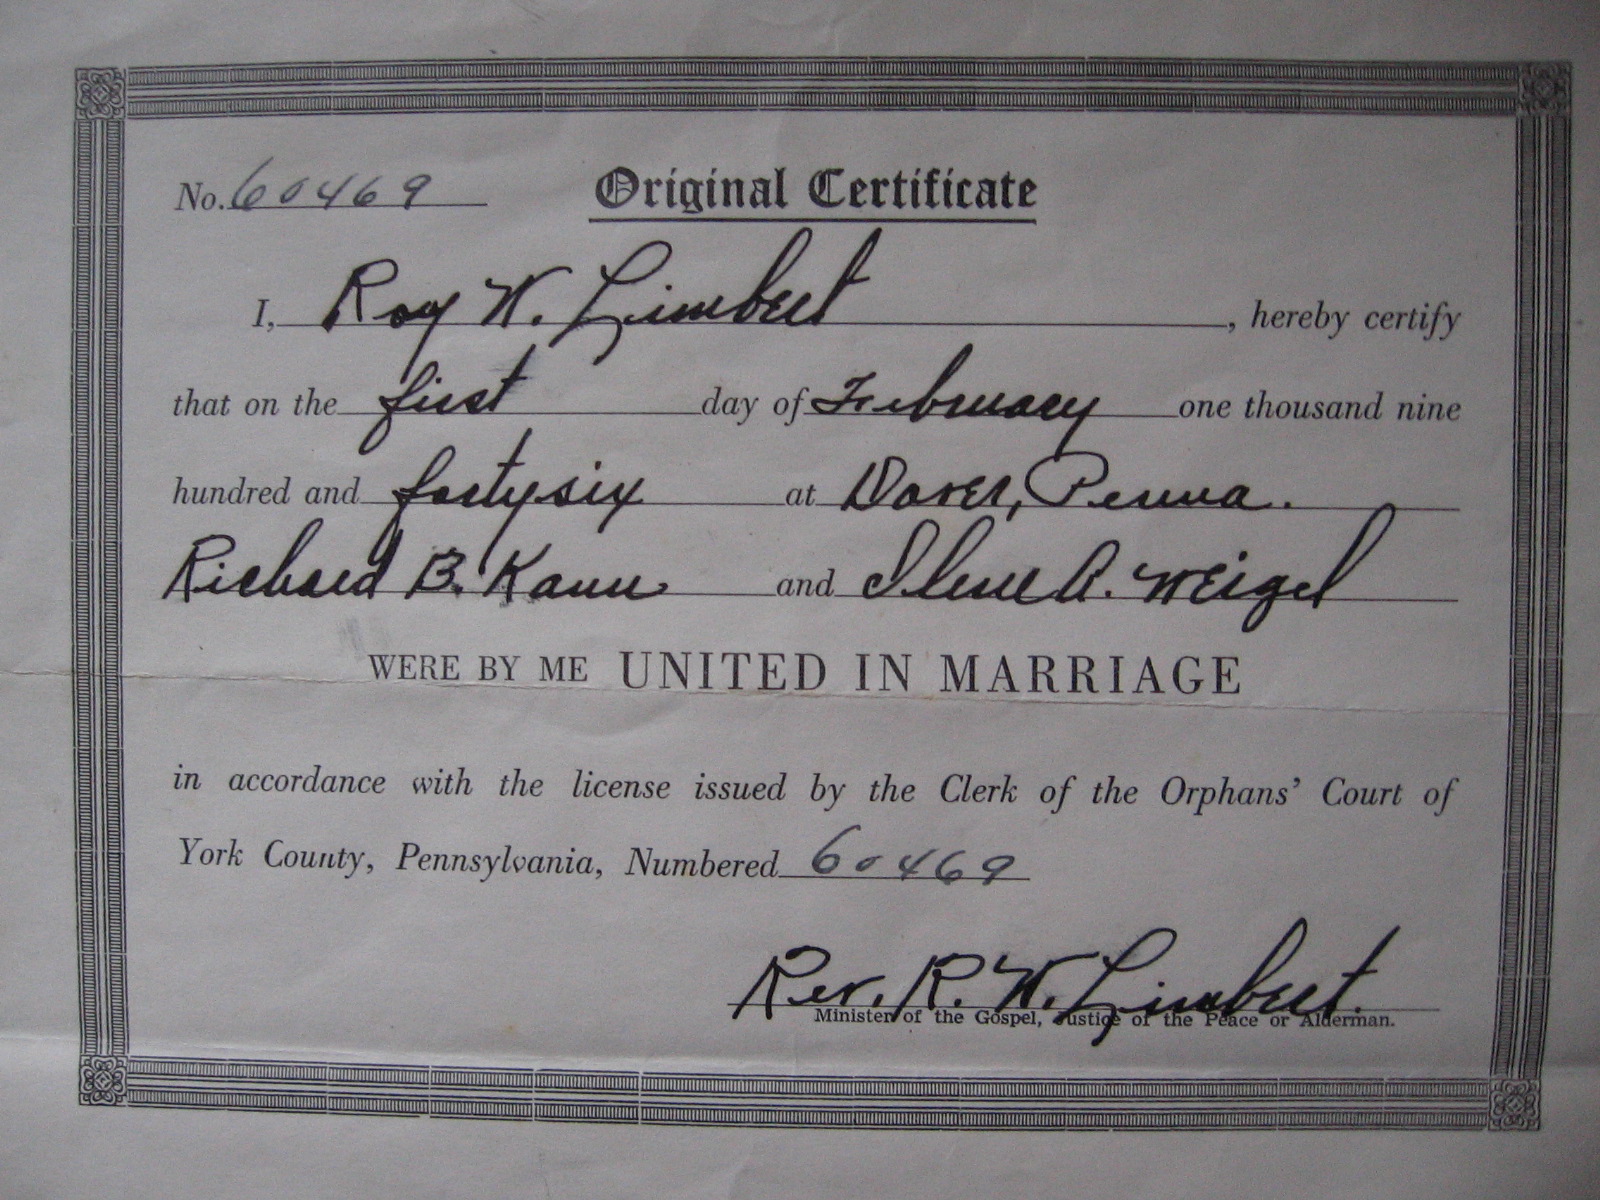 No. 60469 Original Certificate
I, Roy W. Limbert, hereby certify
that on the first day of February one thousand nine
hundred and forty six at Dover, Penna.
Richard B. Kann and Ilene A. Weigel
WERE BY ME UNITED IN MARRIAGE
in accordance with the license issued by the Clerk of the Orphans' Court of
York County, Pennsylvania, Numbered 60469
Rev. R. W. Limbert.
Minister of the Gospel, Justice of the Peace or Alderman.